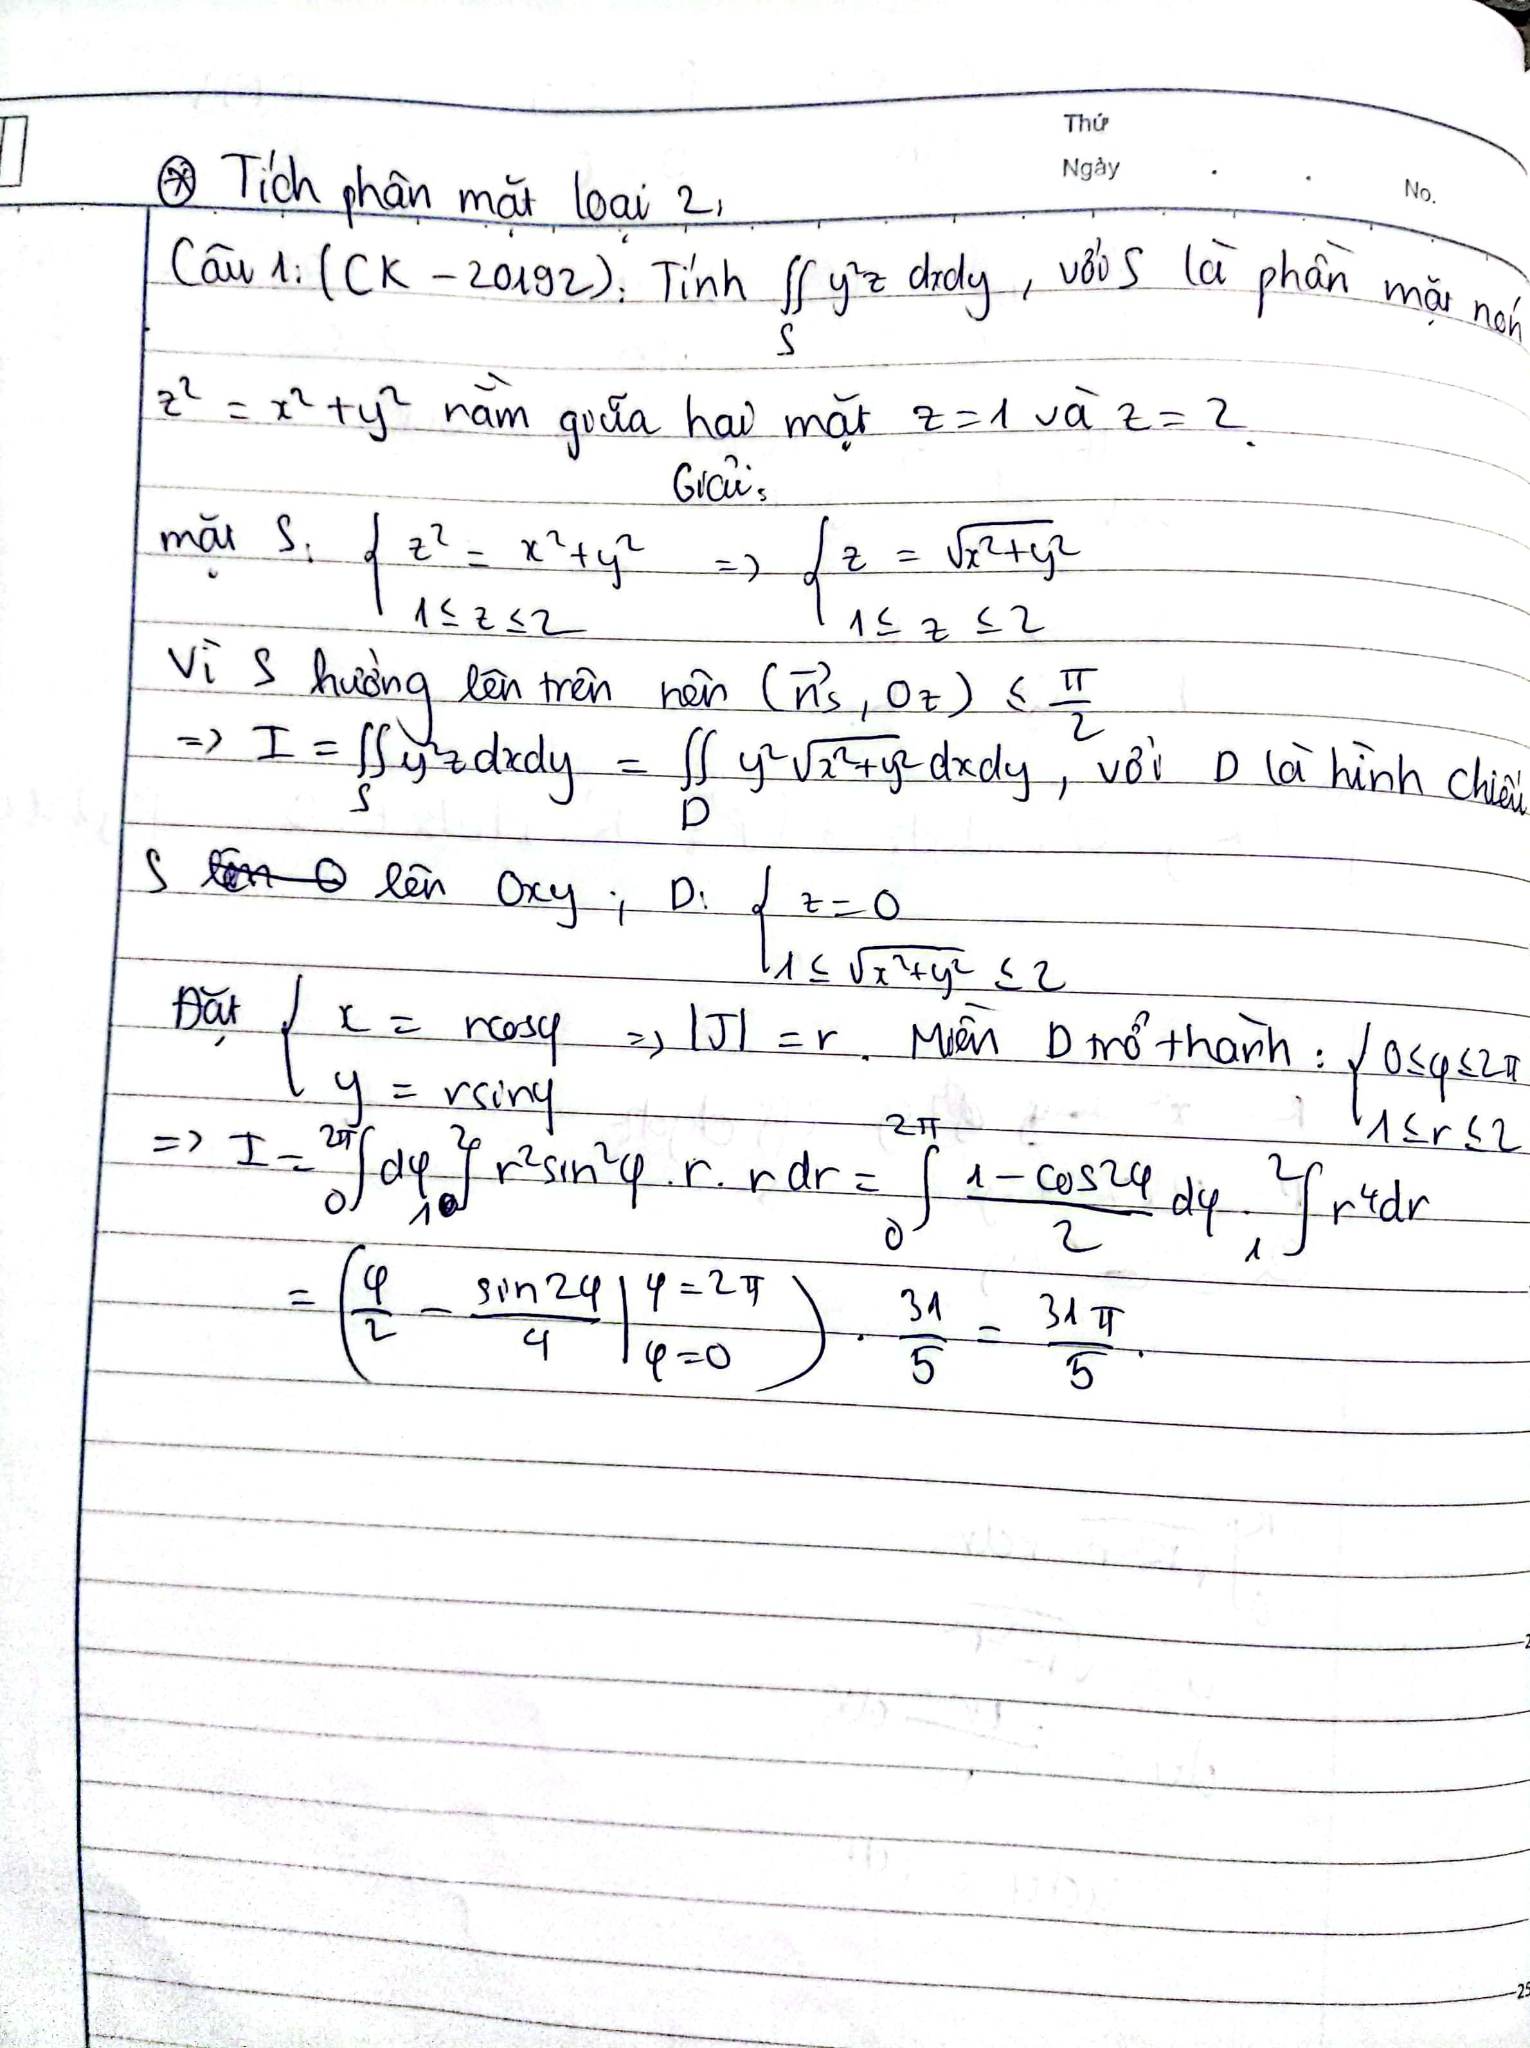 Thứ
Ngày . .
No.
⊛ Tích phân mặt loại 2,
Câu 1: (CK - 20192): Tính ∬_S y²z dxdy, với S là phần mặt nón
z² = x² + y² nằm giữa hai mặt z = 1 và z = 2.
Giải:
mặt S: { z² = x² + y² ; 1 ≤ z ≤ 2 => { z = √(x² + y²) ; 1 ≤ z ≤ 2
Vì S hướng lên trên nên (n⃗s, Oz) ≤ π/2
=> I = ∬_S y²z dxdy = ∬_D y²√(x² + y²) dxdy, với D là hình chiếu
S lên Oxy ; D: { z = 0 ; 1 ≤ √(x² + y²) ≤ 2
Đặt { x = rcosφ ; y = rsinφ => |J| = r. Miền D trở thành: { 0 ≤ φ ≤ 2π ; 1 ≤ r ≤ 2
=> I = ∫_0^{2π} dφ ∫_1^2 r²sin²φ . r . r dr = ∫_0^{2π} (1 - cos2φ)/2 dφ . ∫_1^2 r⁴dr
= ( φ/2 - sin2φ/4 | φ = 2π φ = 0 ) . 31/5 = 31π/5 .
25